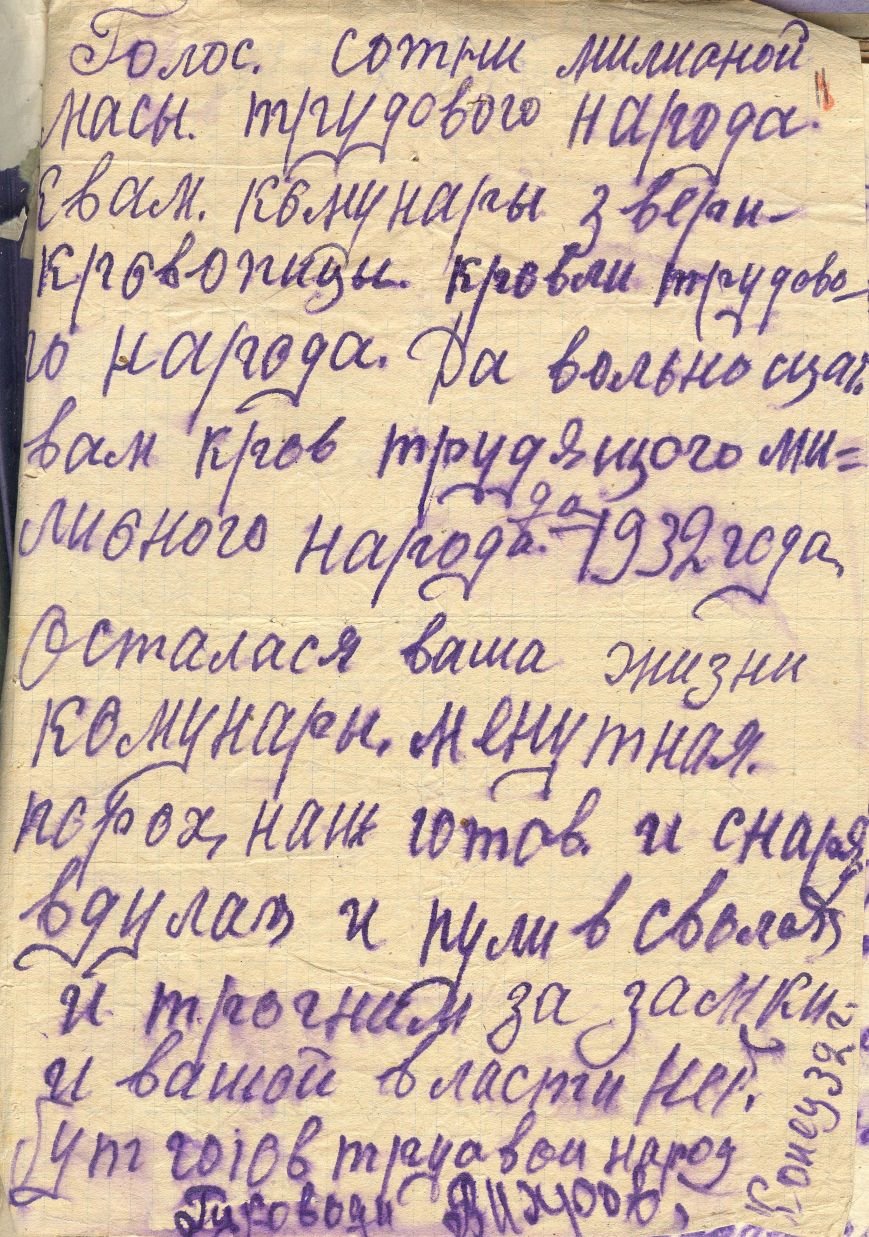 Голос. сотни милионой
масы. трудового народа.
Квам. комунары звери-
кровопицы. кровли трудово-
го народа. Да вольно
вам кров трудящого ми=
лионого народа. да 1932 года,
Осталася ваша жизни
комунары. менутная.
порох, наш готов. и снаря
вдулах и пули в стволах
и трогним за замки-
и вашой власти нет.
бунт готов трудавой народ
Руководи Вихров,
Конец 32 г.